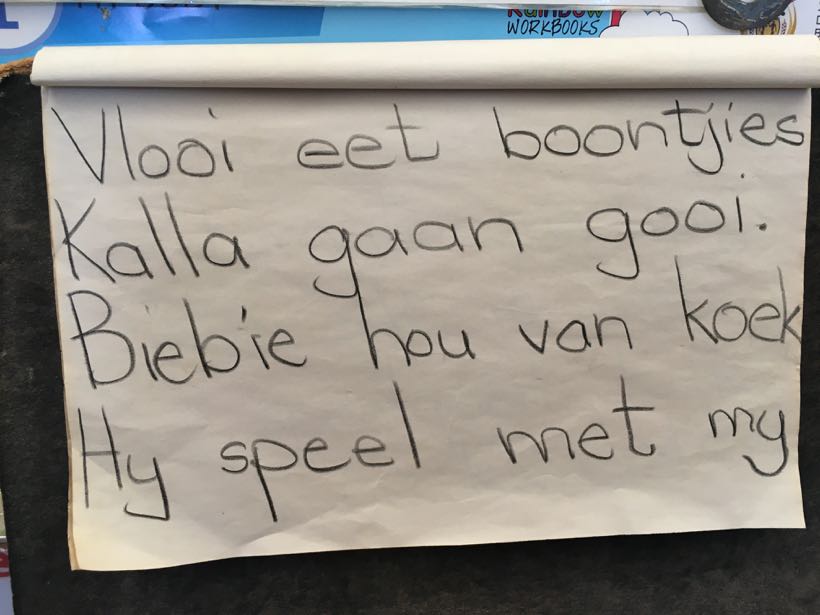 Rainbow
WORKBOOKS
Vlooi eet boontjies
Kalla gaan gooi.
Biebie hou van koek
Hy speel met my